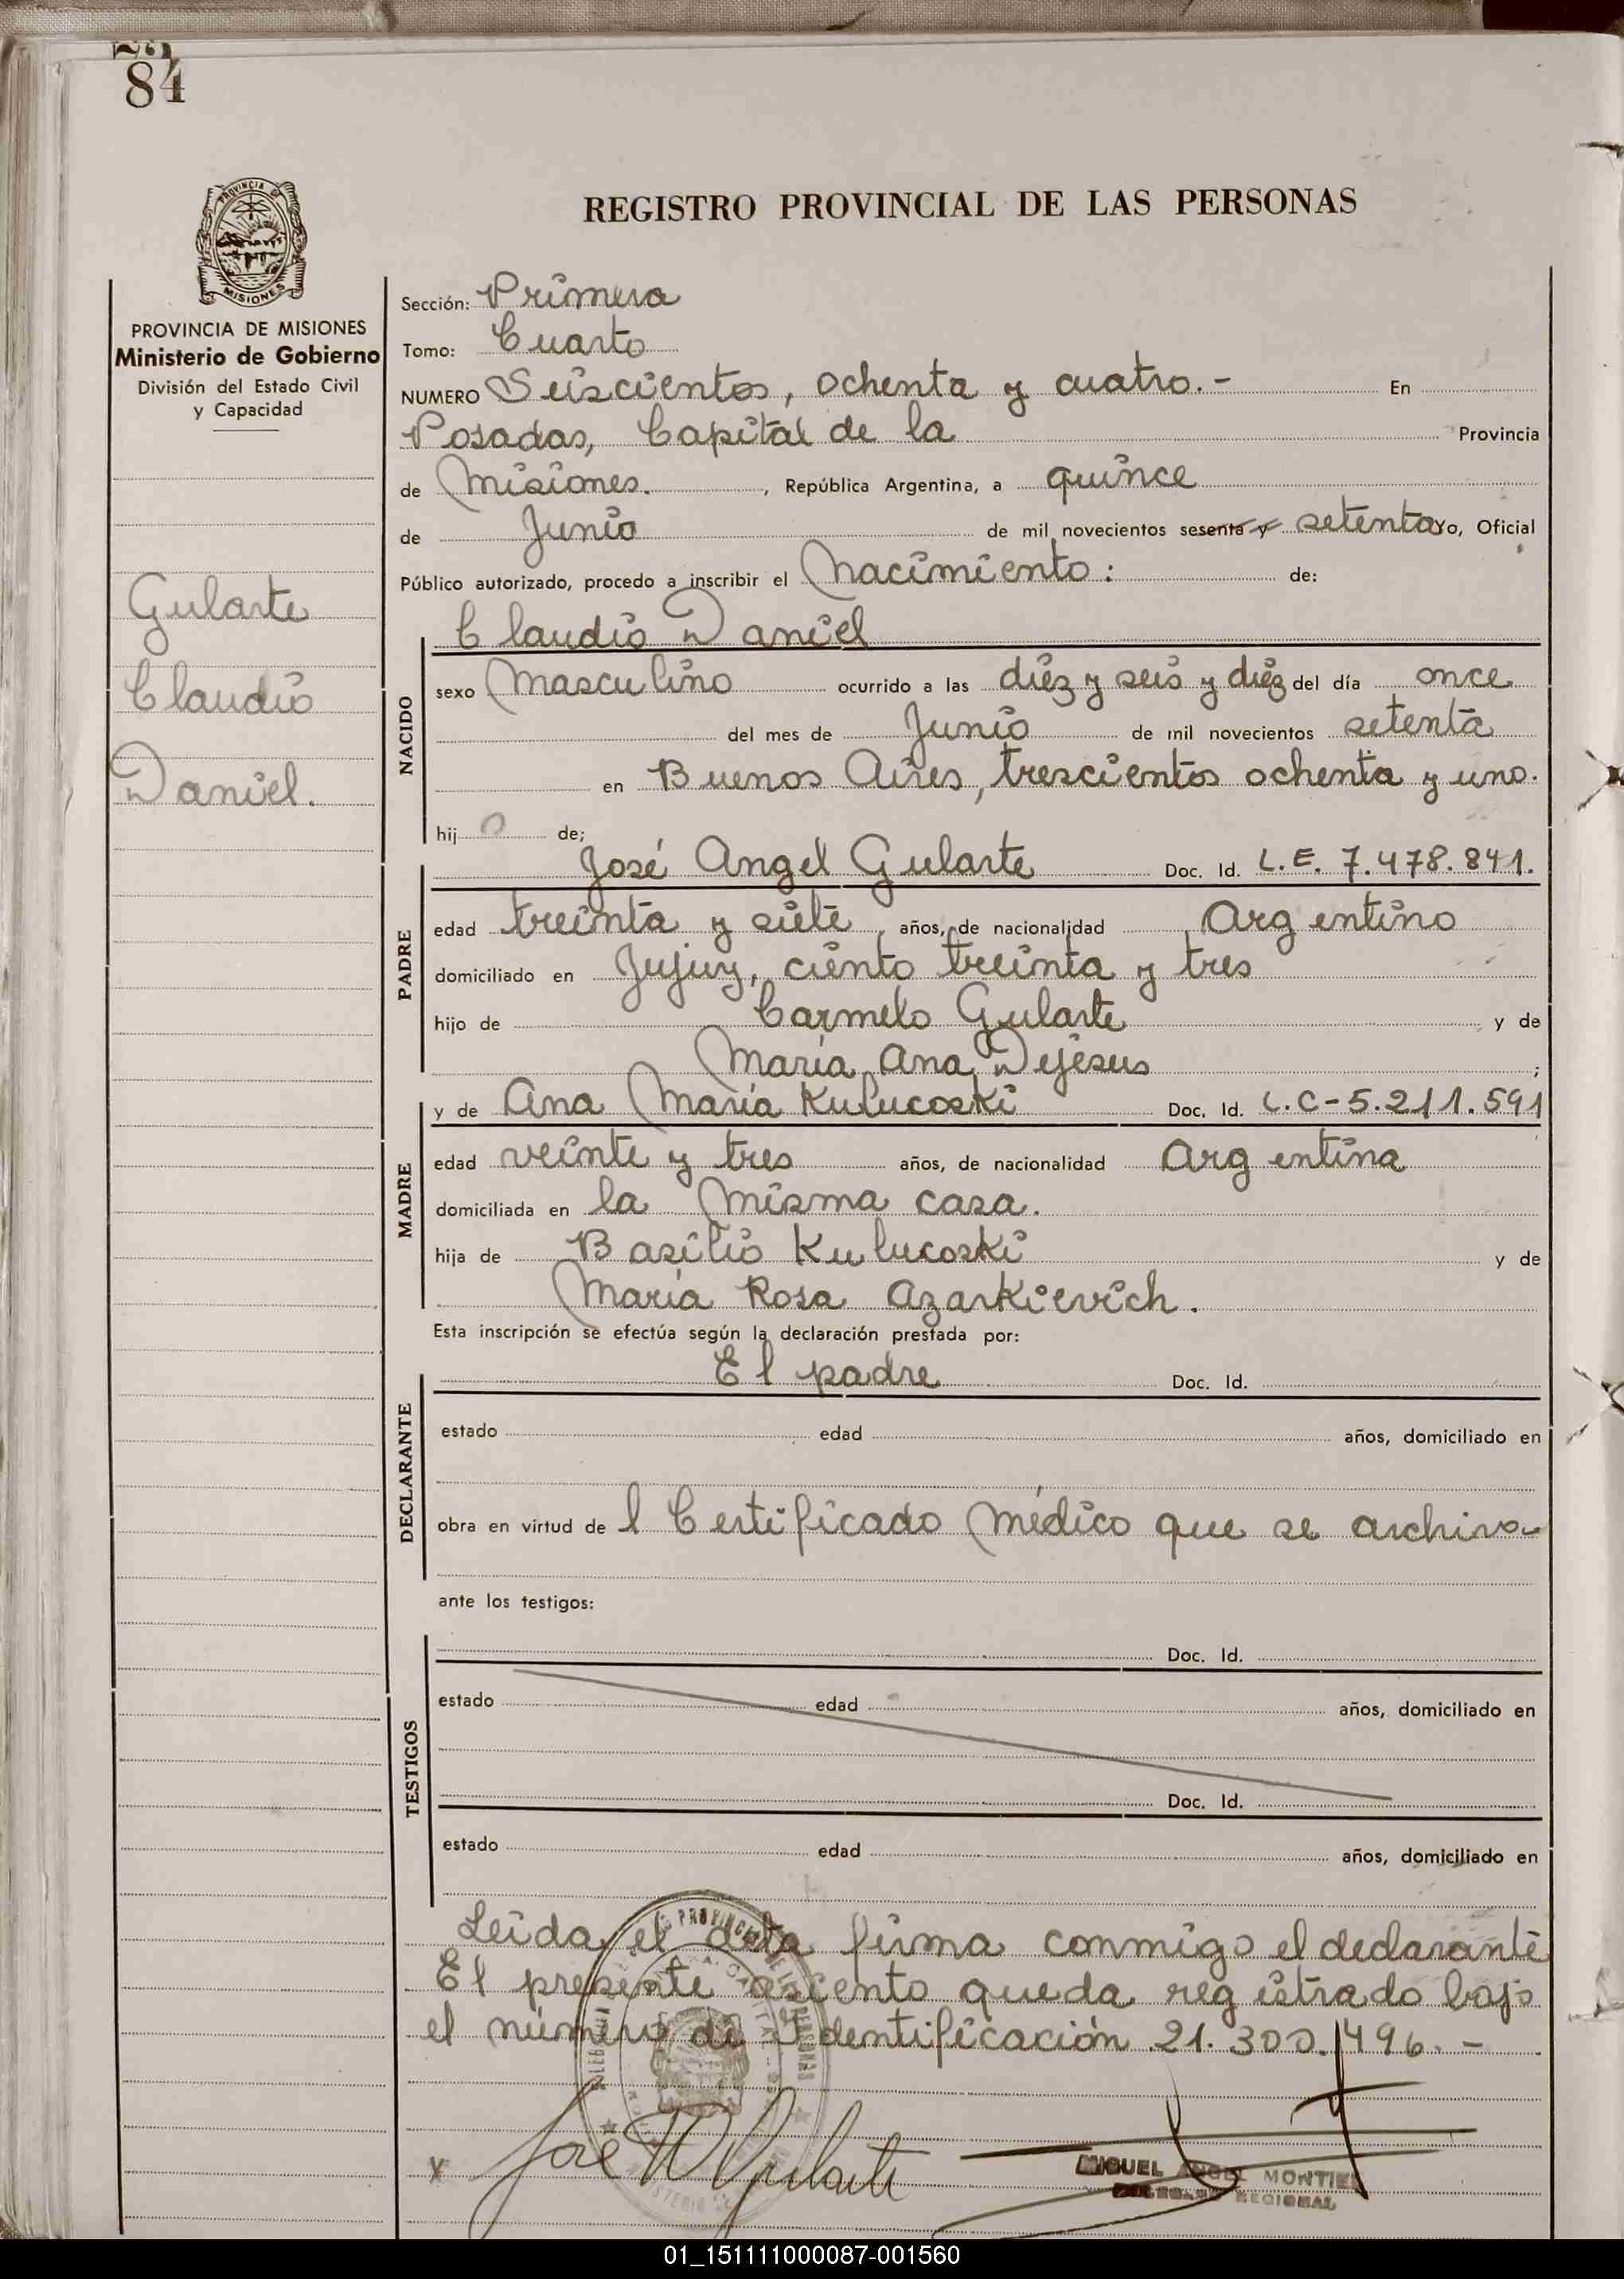 84
PROVINCIA DE
MISIONES
PROVINCIA DE MISIONES
Ministerio de Gobierno
División del Estado Civil
y Capacidad
Gularte
Claudio
Daniel.
REGISTRO PROVINCIAL DE LAS PERSONAS
Sección: Primera
Tomo: Cuarto
NUMERO Seiscientos, ochenta y cuatro.- En
Posadas, Capital de la Provincia
de Misiones. , República Argentina, a quince
de Junio de mil novecientos sesenta y setenta yo, Oficial
Público autorizado, procedo a inscribir el Nacimiento: de:
Claudio Daniel
NACIDO
sexo Masculino ocurrido a las diéz y seis y diéz del día once
del mes de Junio de mil novecientos setenta
en Buenos Aires, trescientos ochenta y uno.
hij o de;
José Angel Gularte Doc. Id. L.E. 7.478.841.
PADRE
edad treinta y siete años, de nacionalidad Argentino
domiciliado en Jujuy, ciento treinta y tres
hijo de Carmelo Gularte y de
María Ana Dejesus ;
y de Ana María Kulucoski Doc. Id. L.C-5.211.591
MADRE
edad veinte y tres años, de nacionalidad Argentina
domiciliada en la misma casa.
hija de Basilio Kulucoski y de
María Rosa Azarkievich.
Esta inscripción se efectúa según la declaración prestada por:
El padre Doc. Id.
DECLARANTE
estado edad años, domiciliado en
obra en virtud de l Certificado Médico que se archiva-
ante los testigos:
Doc. Id.
TESTIGOS
estado edad años, domiciliado en
Doc. Id.
estado edad años, domiciliado en
Leida el acta firma conmigo el declarante
El presente asiento queda registrado bajo
el número de Identificación 21.300.496.-
x José A Gularte
MIGUEL ANGEL MONTIEL
DELEGADO REGIONAL
01_151111000087-001560